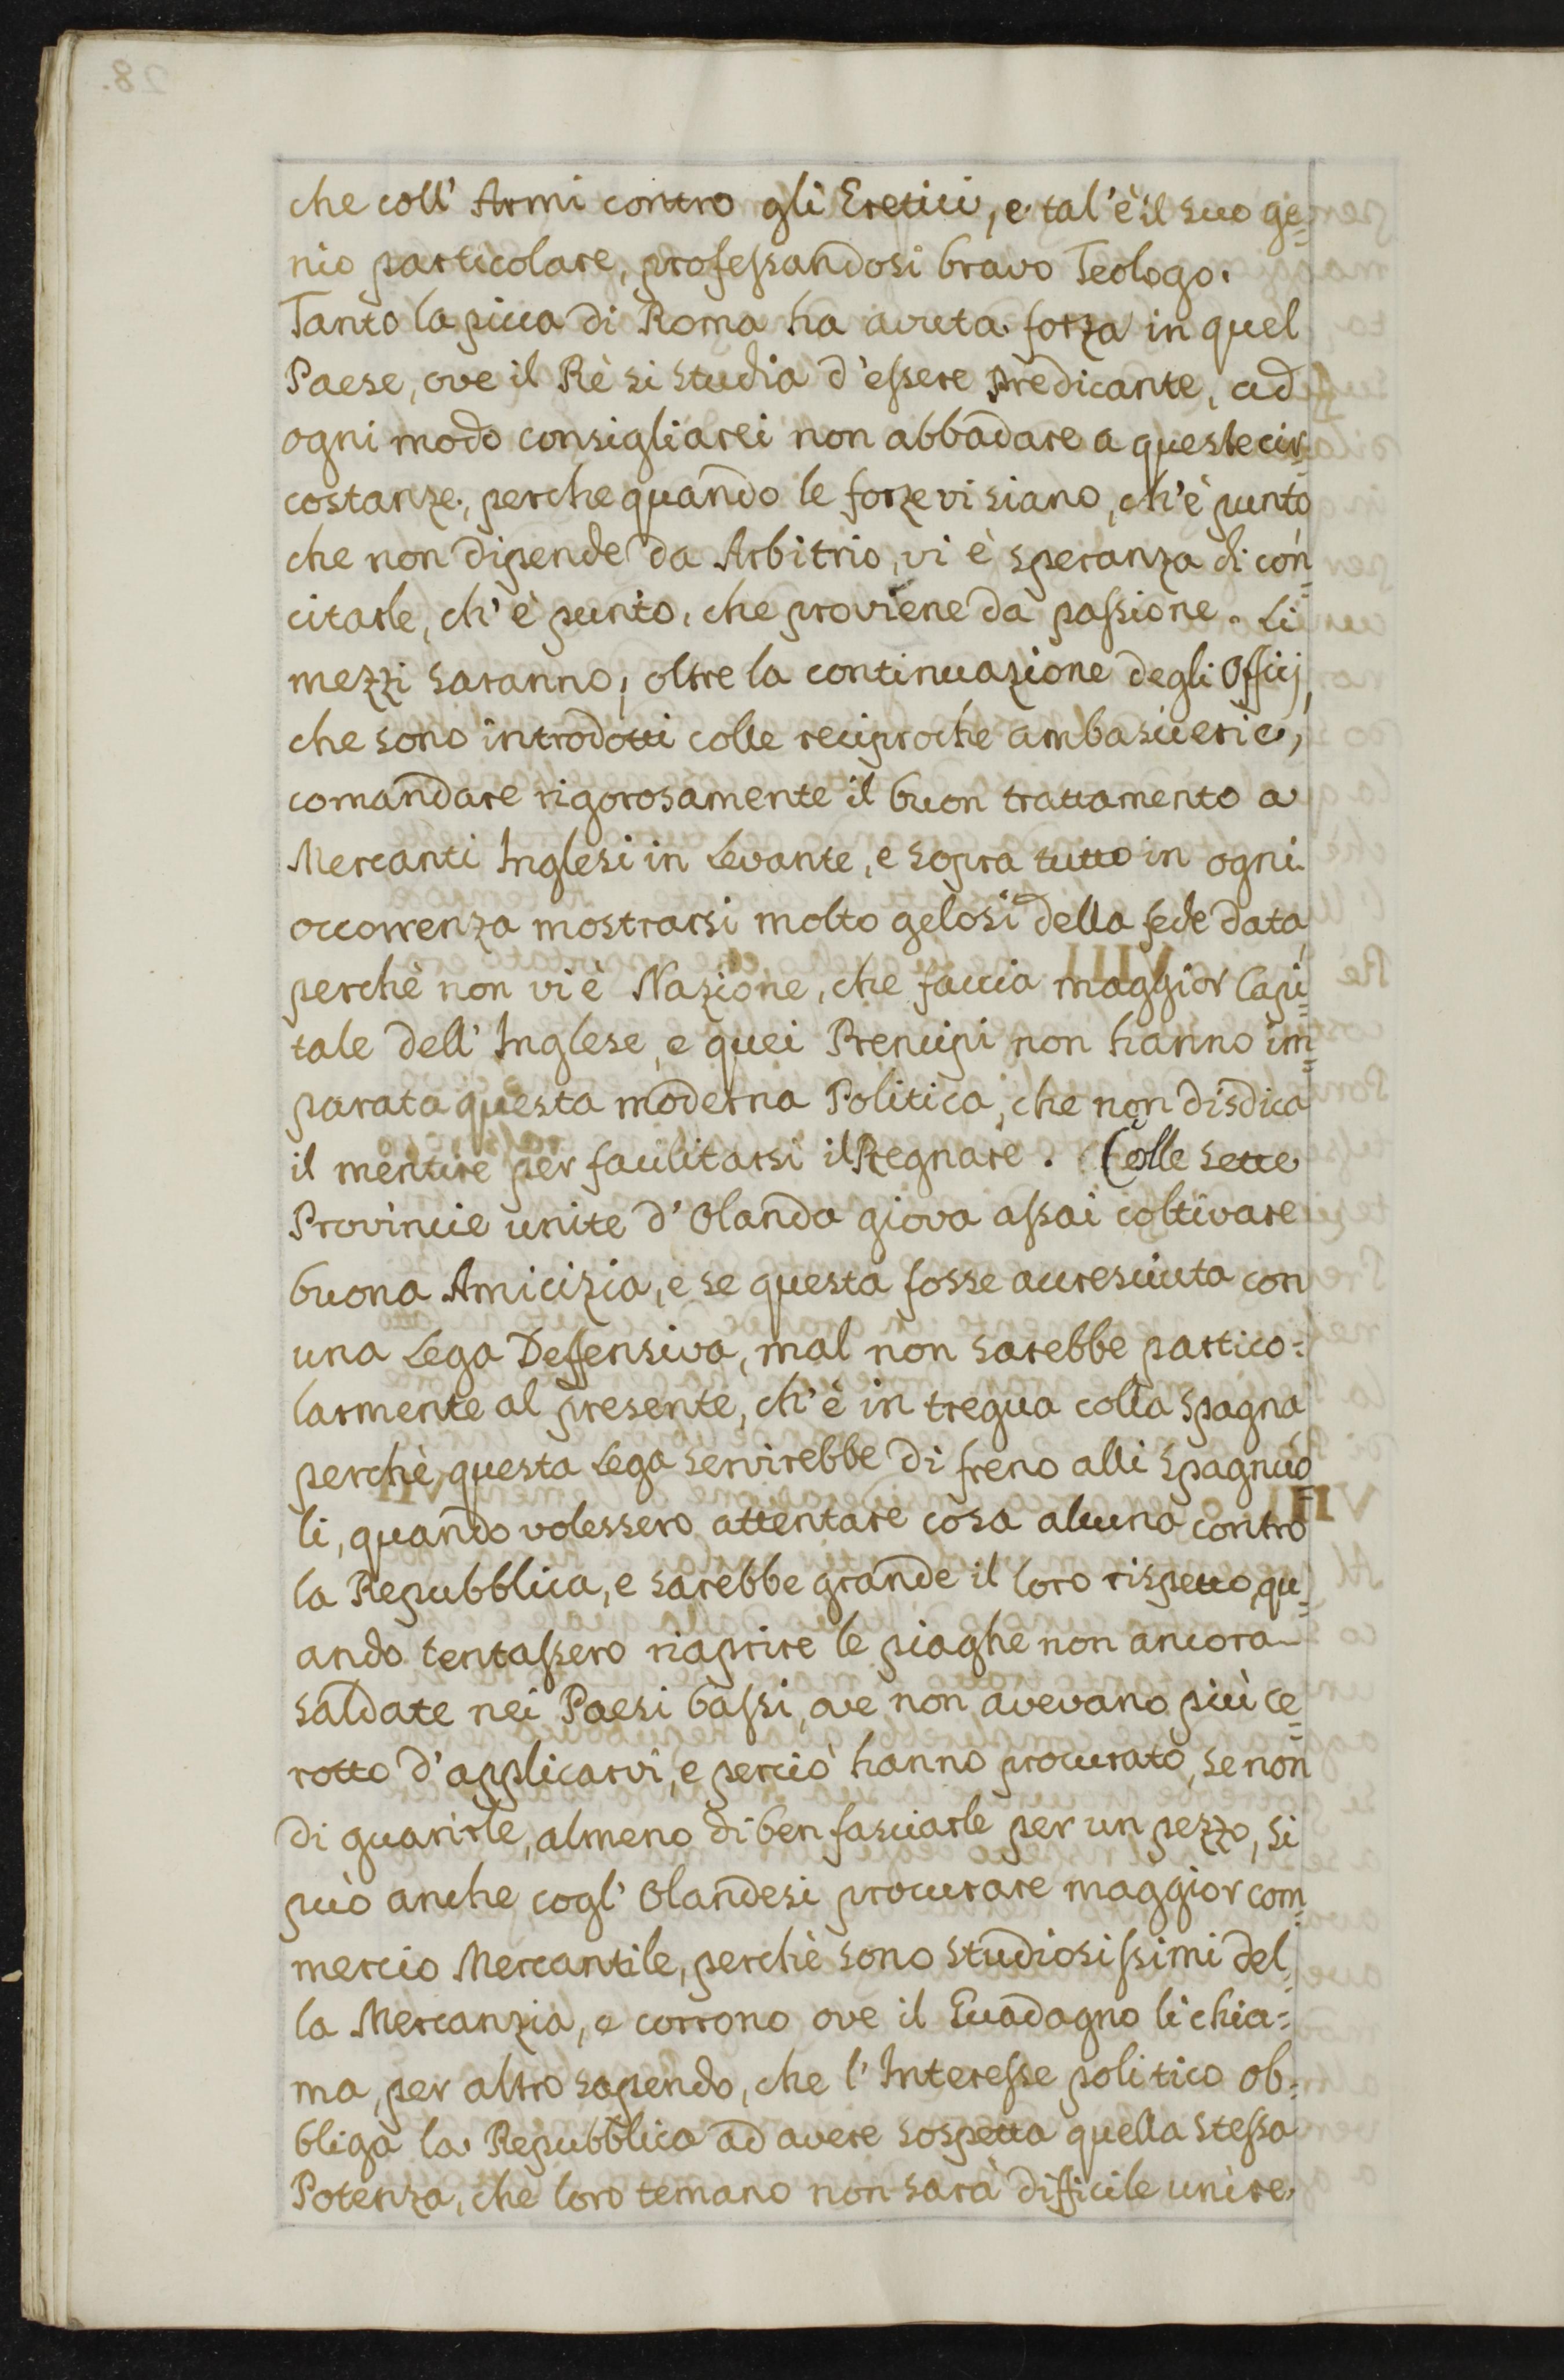 che coll' Armi contro gli Eretici, e tal' è il suo ge=
nio particolare, professandosi bravo Teologo.
Tanto la picca di Roma ha avuta forza in quel
Paese, ove il Rè si studia d'essere predicante, ad
ogni modo consigliarei non abbadare a queste cir=
costanze, perche quando le forze vi siano, ch'è punto
che non dipende da Arbitrio, vi è speranza di con=
citarle, ch' è punto, che proviene da passione. Li
mezzi saranno, oltre la continuazione degli Officj,
che sono introdotti colle reciproche ambascierie,
comandare rigorosamente il buon trattamento a
Mercanti Inglesi in Levante, e sopra tutto in ogni
occorrenza mostrarsi molto gelosi della fede data,
perchè non vi è Nazione, che faccia maggior Capi=
tale dell' Inglese, e quei Prencipi non hanno im=
parata questa moderna Politica, che non disdica
il mentire per facilitarsi il Regnare. Colle sette
Provincie unite d' Olanda giova assai coltivare
buona Amicizia, e se questa fosse accresciuta con
una Lega Deffensiva, mal non sarebbe partico=
larmente al presente, ch'è in tregua colla Spagna,
perchè questa Lega servirebbe di freno alli Spagnuo=
li, quando volessero attentare cosa alcuna contro
la Repubblica, e sarebbe grande il loro rispetto, qu=
ando tentassero riaprire le piaghe non ancora
saldate nei Paesi bassi, ove non avevano più ce=
rotto d' applicarvi, e perciò hanno procurato, se non
di guarirle, almeno di ben fasciarle per un pezzo, si
può anche cogl' Olandesi procurare maggior com=
mercio Mercantile, perchè sono studiosissimi del=
la Mercanzia, e corrono ove il Guadagno li chia=
ma, per altro sapendo, che l' Interesse politico ob=
bliga la Repubblica ad avere sospetta quella stessa
Potenza, che loro temano non sarà difficile unire